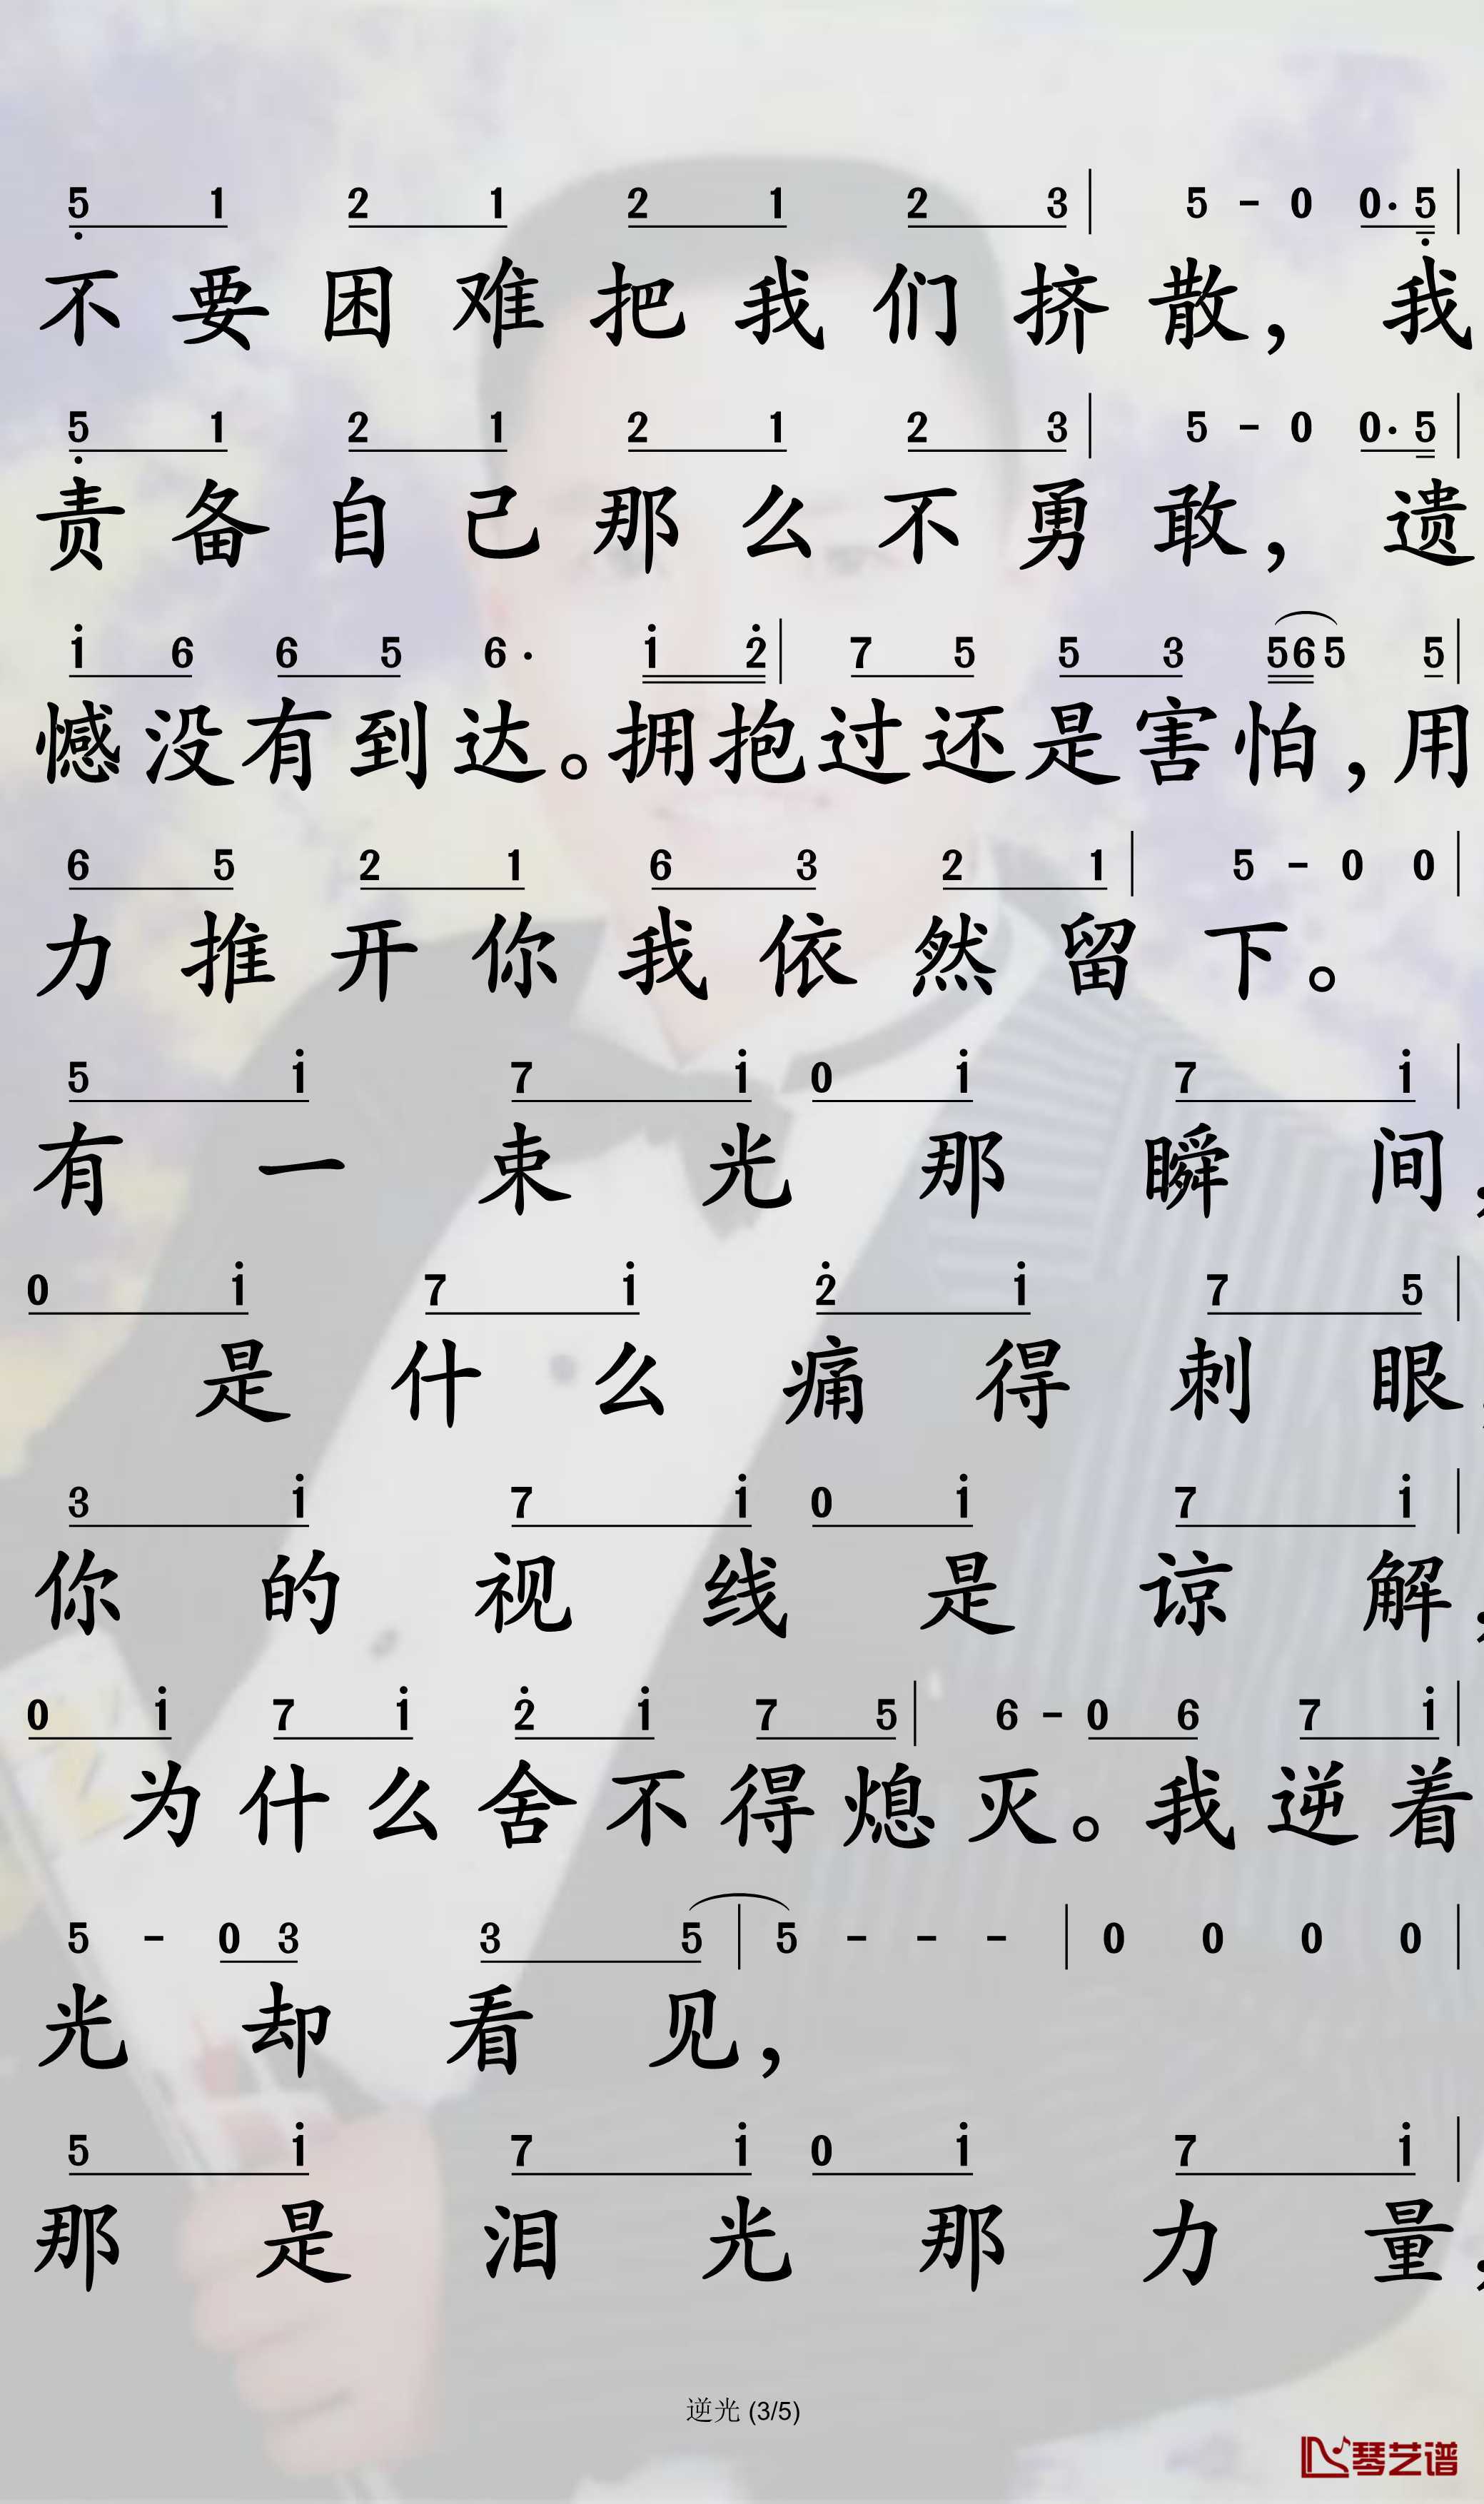 5 1 2 1 2 1 2 3 | 5 - 0 0· 5 |
不要困难把我们挤散，我
5 1 2 1 2 1 2 3 | 5 - 0 0· 5 |
责备自己那么不勇敢，遗
i 6 6 5 6· i 2 | 7 5 5 3 565 5 |
憾没有到达。拥抱过还是害怕，用
6 5 2 1 6 3 2 1 | 5 - 0 0 |
力推开你我依然留下。
5 i 7 i 0 i 7 i |
有一束光那瞬间，
0 i 7 i 2 i 7 5 |
是什么痛得刺眼，
3 i 7 i 0 i 7 i |
你的视线是谅解，
0 i 7 i 2 i 7 5 | 6 - 0 6 7 i |
为什么舍不得熄灭。我逆着
5 - 0 3 3 5 | 5 - - - | 0 0 0 0 |
光却看见，
5 i 7 i 0 i 7 i |
那是泪光那力量，
逆光 (3/5)
琴艺谱